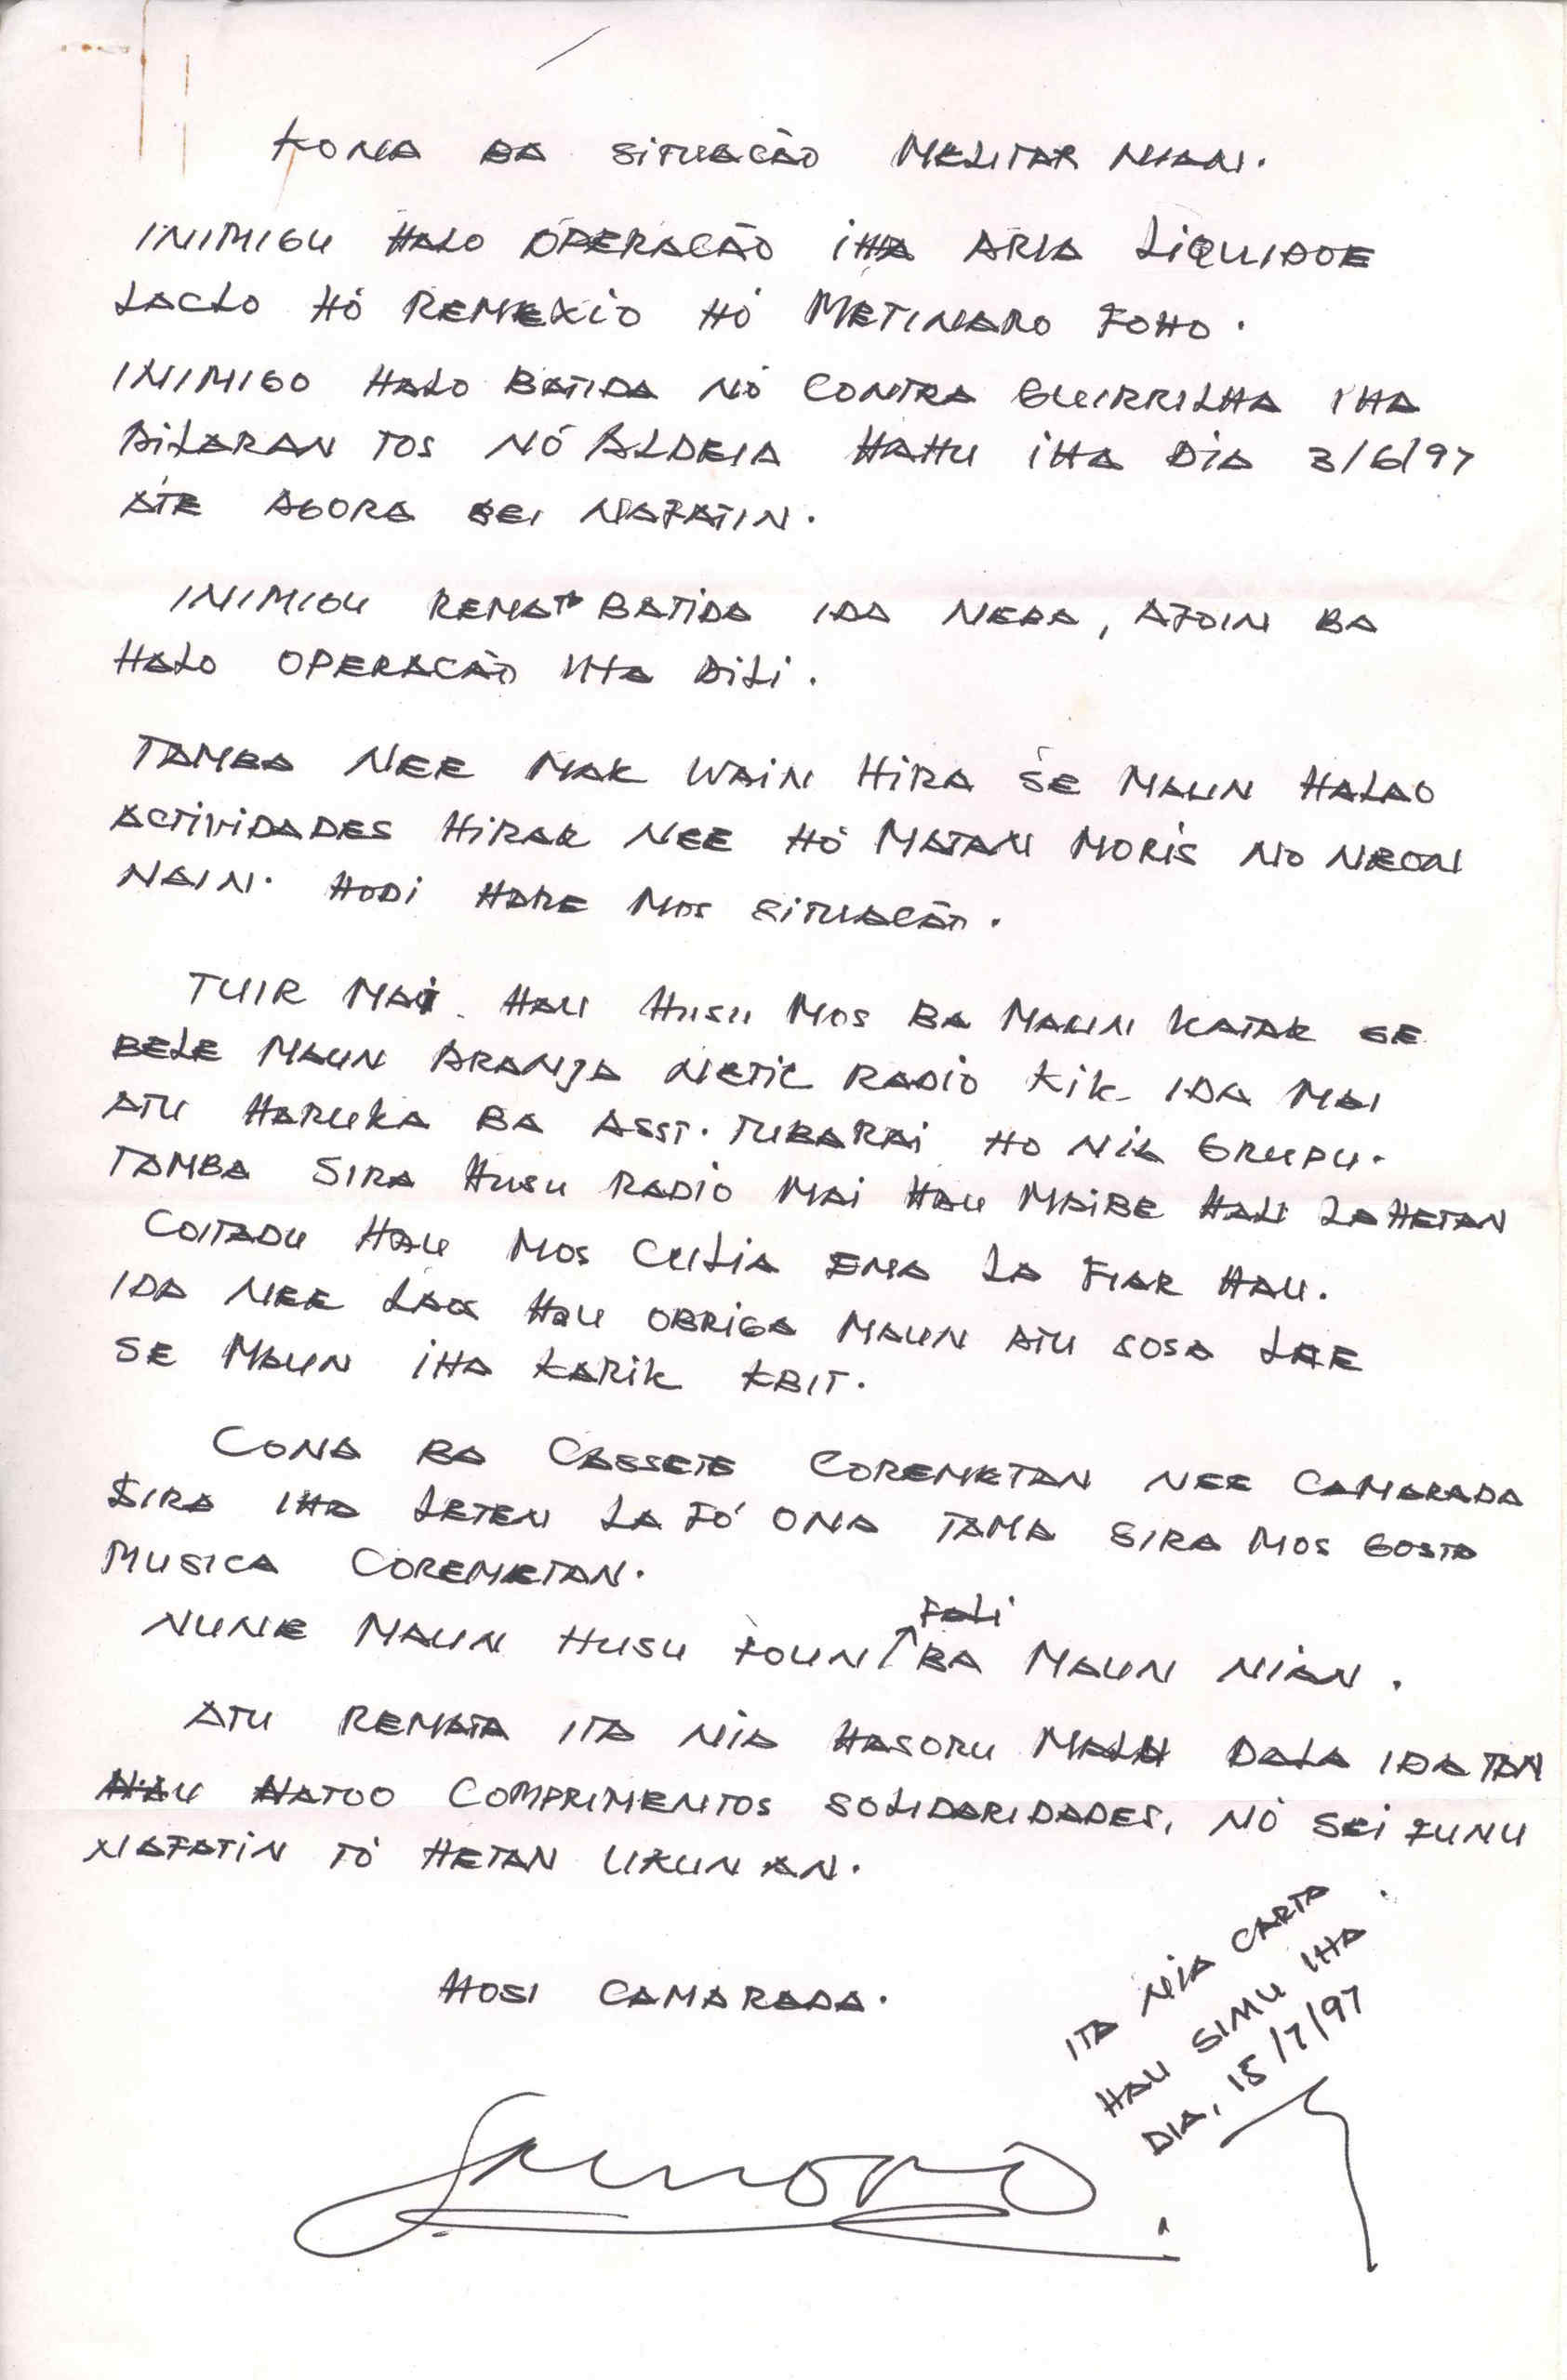 KONA BA SITUACÃO MELITAR NIAN.
INIMIGU HALO OPERACÃO IHA ARIA LIQUIDOE
LACLO HÓ REMEXIO HÓ METINARO FOHO.
INIMIGO HALO BATIDA NÓ CONTRA GUIRRILHA IHA
BILARAN TOS NÓ ALDEIA HAHU IHA DIA 3/6/97
ATÉ AGORA SEI NAFATIN.
INIMIGU REMATA BATIDA IDA NEBA, AFOIN BA
HALO OPERACÃO IHA DILI.
TAMBA NEE MAK WAIN HIRA SE MAUN HALAO
ACTIVIDADES HIRAK NEE HÓ MATAN MORIS NO NEON
NAIN. HODI HARE MOS SITUACÃO.
TUIR MAI. HAU HUSU MOS BA MAUN KATAK SE
BELE MAUN ARANJA NETIC RADIO KIK IDA MAI
ATU HARUKA BA ASST. TUBARAI HO NIA GRUPU.
TAMBA SIRA HUSU RADIO MAI HAU MAIBE HAU LA HETAN
COITADU HAU MOS CULIA EMA LA FIAR HAU.
IDA NEE LAOS HAU OBRIGA MAUN ATU SOSA LEE
SE MAUN IHA KARIK KBIT.
CONA BA CASSETE COREMETAN NEE CAMARADA
SIRA IHA LETEN LA FÓ ONA TAMA SIRA MOS GOSTA
MUSICA COREMETAN.
NUNE MAUN HUSU FOUN FALI BA MAUN NIAN.
ATU REMATA ITA NIA HASORU MALU DALA IDA TAN
HAU HATOO COMPRIMENTOS SOLIDARIDADES, NÓ SEI FUNU
NAFATIN TÓ HETAN UKUN AN.
HOSI CAMARADA.
ITA NIA CARTA
HAU SIMU IHA
DIA, 15/7/97